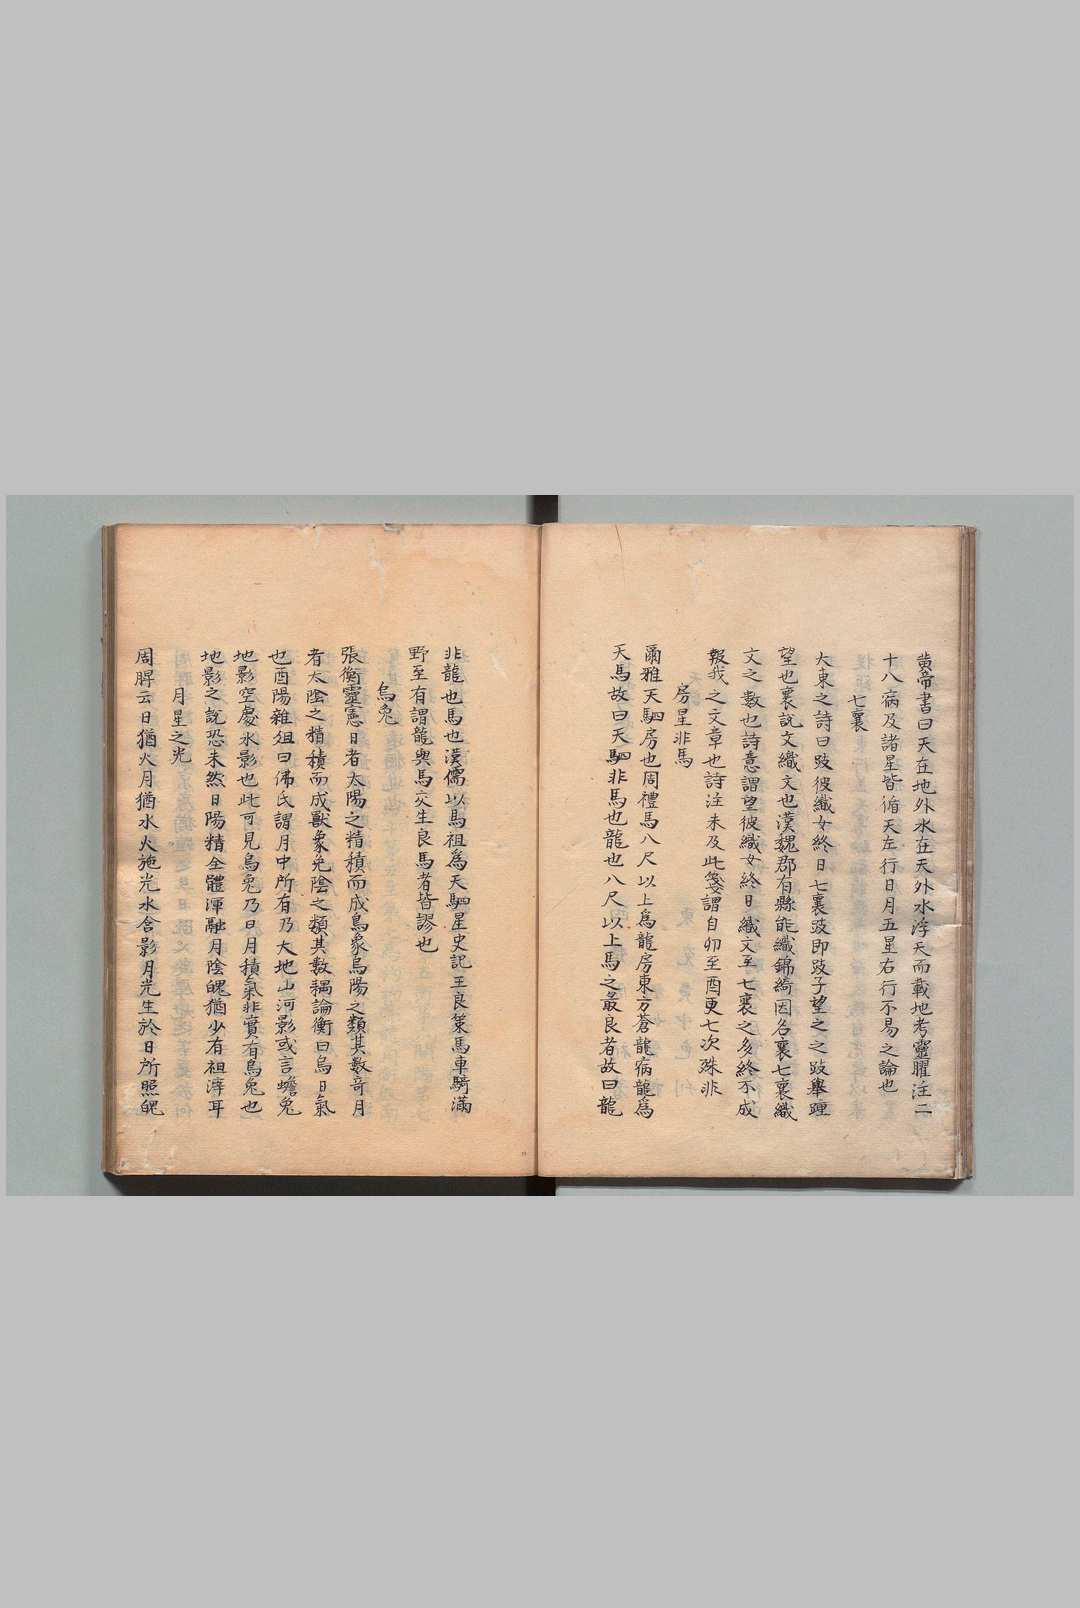 黄帝書曰天在地外水在天外水浮天而載地考靈曜注二
十八宿及諸星皆循天左行日月五星右行不易之論也
七襄
大東之詩曰跂彼織女終日七襄跂即跂予望之之跂舉踵
望也襄說文織文也漢魏郡有縣能織錦綺因名襄七襄織
文之數也詩意謂望彼織女終日織文至七襄之多終不成
報我之文章也詩注未及此箋謂自卯至酉更七次殊非
房星非馬
爾雅天駟房也周禮馬八尺以上爲龍房東方蒼龍病龍爲
天馬故曰天駟非馬也龍也八尺以上馬之最良者故曰龍
非龍也馬也漢儒以馬祖爲天駟星史記王良策馬車騎滿
野至有謂龍與馬交生良馬者皆謬也
烏兔
張衡靈憲日者太陽之精積而成鳥象烏陽之類其數奇月
者太陰之精積而成獸象兔陰之類其數耦論衡曰烏日氣
也酉陽雜俎曰佛氏謂月中所有乃大地山河影或言蟾兔
地影空處水影也此可見烏兔乃日月積氣非實有烏兔也
地影之說恐未然日陽精全體渾融月陰魄猶少有祖滓耳
月星之光
周髀云日猶火月猶水火施光水含影月光生於日所照魄